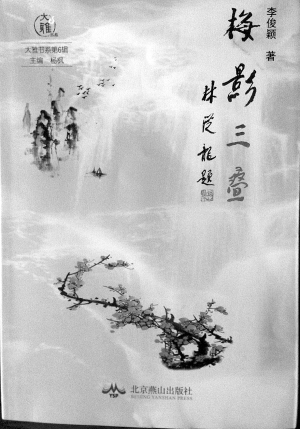 大雅
大雅书系第6辑
主编 杨枫
李俊颖 著
梅影三叠
林从龙题
北京燕山出版社
BEIJING YANSHAN PRESS
YSP